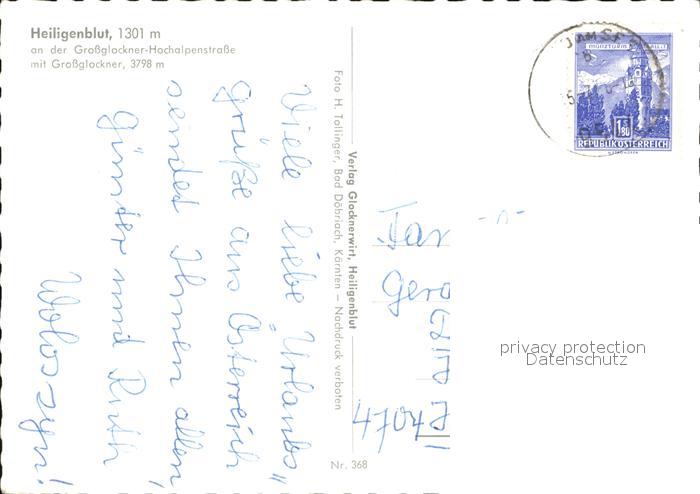 Heiligenblut, 1301 m
an der Großglockner-Hochalpenstraße
mit Großglockner, 3798 m
Viele liebe Urlaubs„
grüße aus Österreich
sendet Ihnen allen,
Günter und Ruth
Woloszyn!
Verlag Glocknerwirt, Heiligenblut
Foto H. Tollinger, Bad Döbriach, Kärnten — Nachdruck verboten
Nr. 368
MÜNZTURM
REPUBLIK ÖSTERREICH
Fam
Gero
4704
privacy protection
Datenschutz